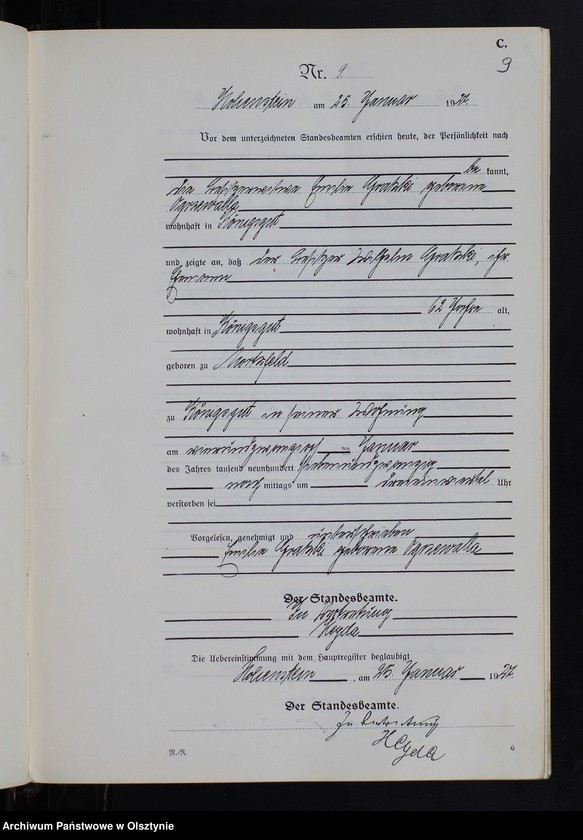 C.
9
Nr. 9
Hohenstein am 25 Januar 1927.
Vor dem unterzeichneten Standesbeamten erschien heute, der Persönlichkeit nach
be kannt,
die Besitzerwitwe Emilie Gratzki geborene
Ogrzewalla
wohnhaft in Königsgut
und zeigte an, daß der Besitzer Wilhelm Gratzki, ihr
Ehemann
62 Jahre alt,
wohnhaft in Königsgut
geboren zu
zu Königsgut in seiner Wohnung
am vierundzwanzigsten des Januar
des Jahres tausend neunhundert siebenundzwanzig
nach mittags um Uhr
verstorben sei
Vorgelesen, genehmigt und unterschrieben
Emilie Gratzki geborene Ogrzewalla
Der Standesbeamte.
In Vertretung
Heyda
Die Uebereinstimmung mit dem Hauptregister beglaubigt
Hohenstein, am 25. Januar 1927.
Der Standesbeamte.
In Vertretung
Heyda
N.-N.
6
Archiwum Państwowe w Olsztynie